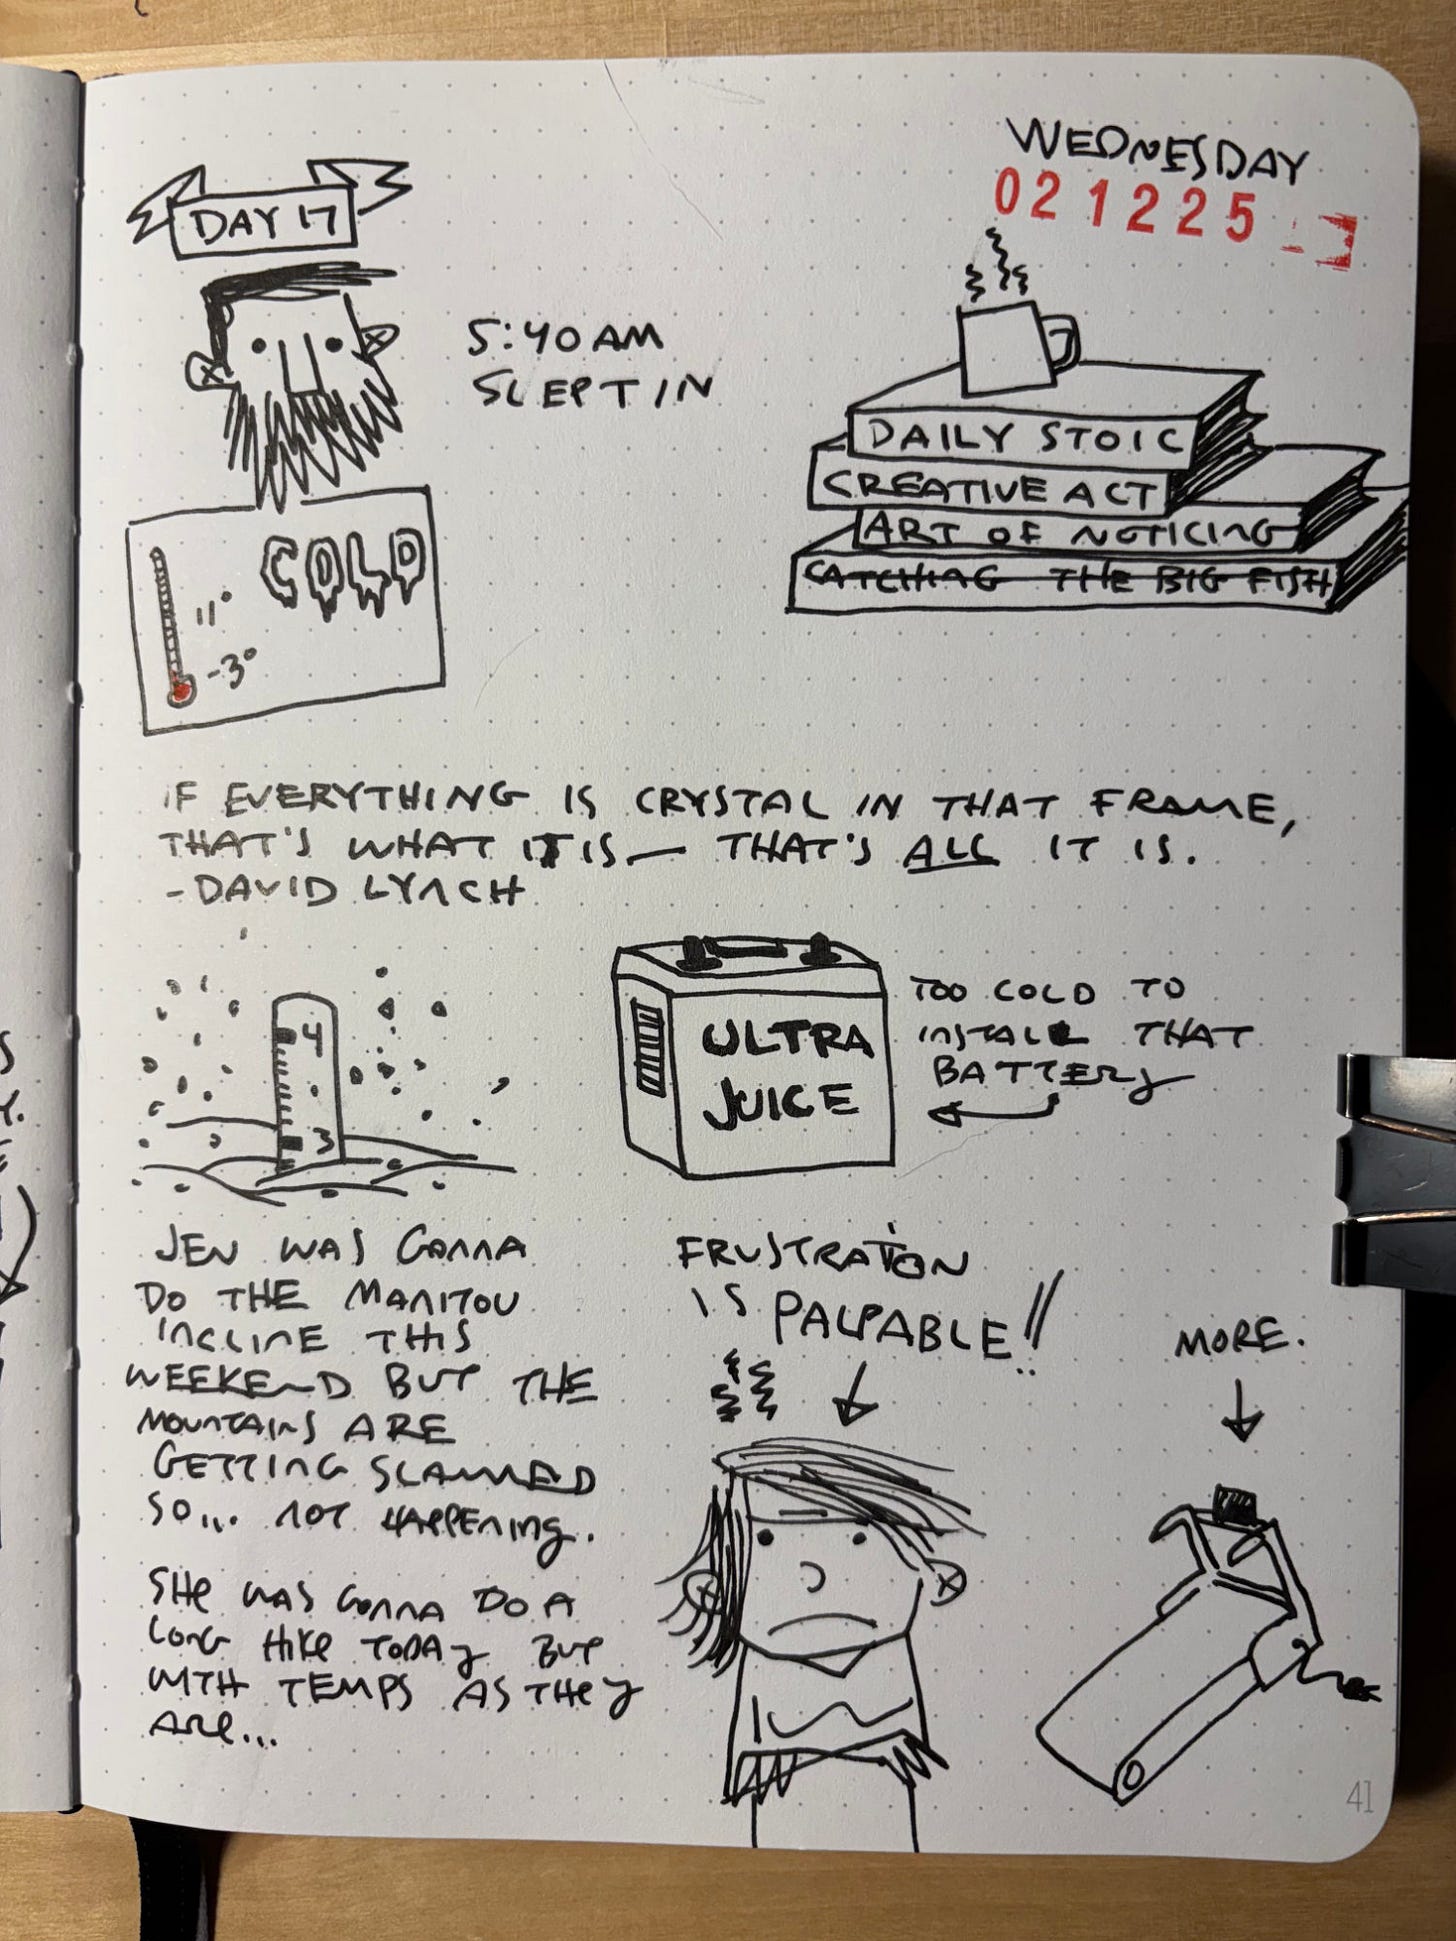 WEDNESDAY
021225
DAY 17
5:40 AM
SLEPT IN
DAILY STOIC
CREATIVE ACT
ART OF NOTICING
CATCHING THE BIG FISH
COLD
11°
-3°
IF EVERYTHING IS CRYSTAL IN THAT FRAME,
THAT'S WHAT IT IS — THAT'S ALL IT IS.
- DAVID LYNCH
4
3
ULTRA
JUICE
TOO COLD TO
INSTALL THAT
BATTERY
JEN WAS GONNA
DO THE MANITOU
INCLINE THIS
WEEKEND BUT THE
MOUNTAINS ARE
GETTING SLAMMED
SO... NOT HAPPENING.
SHE WAS GONNA DO A
LONG HIKE TODAY BUT
WITH TEMPS AS THEY
ARE...
FRUSTRATION
IS PALPABLE!!
MORE.
41